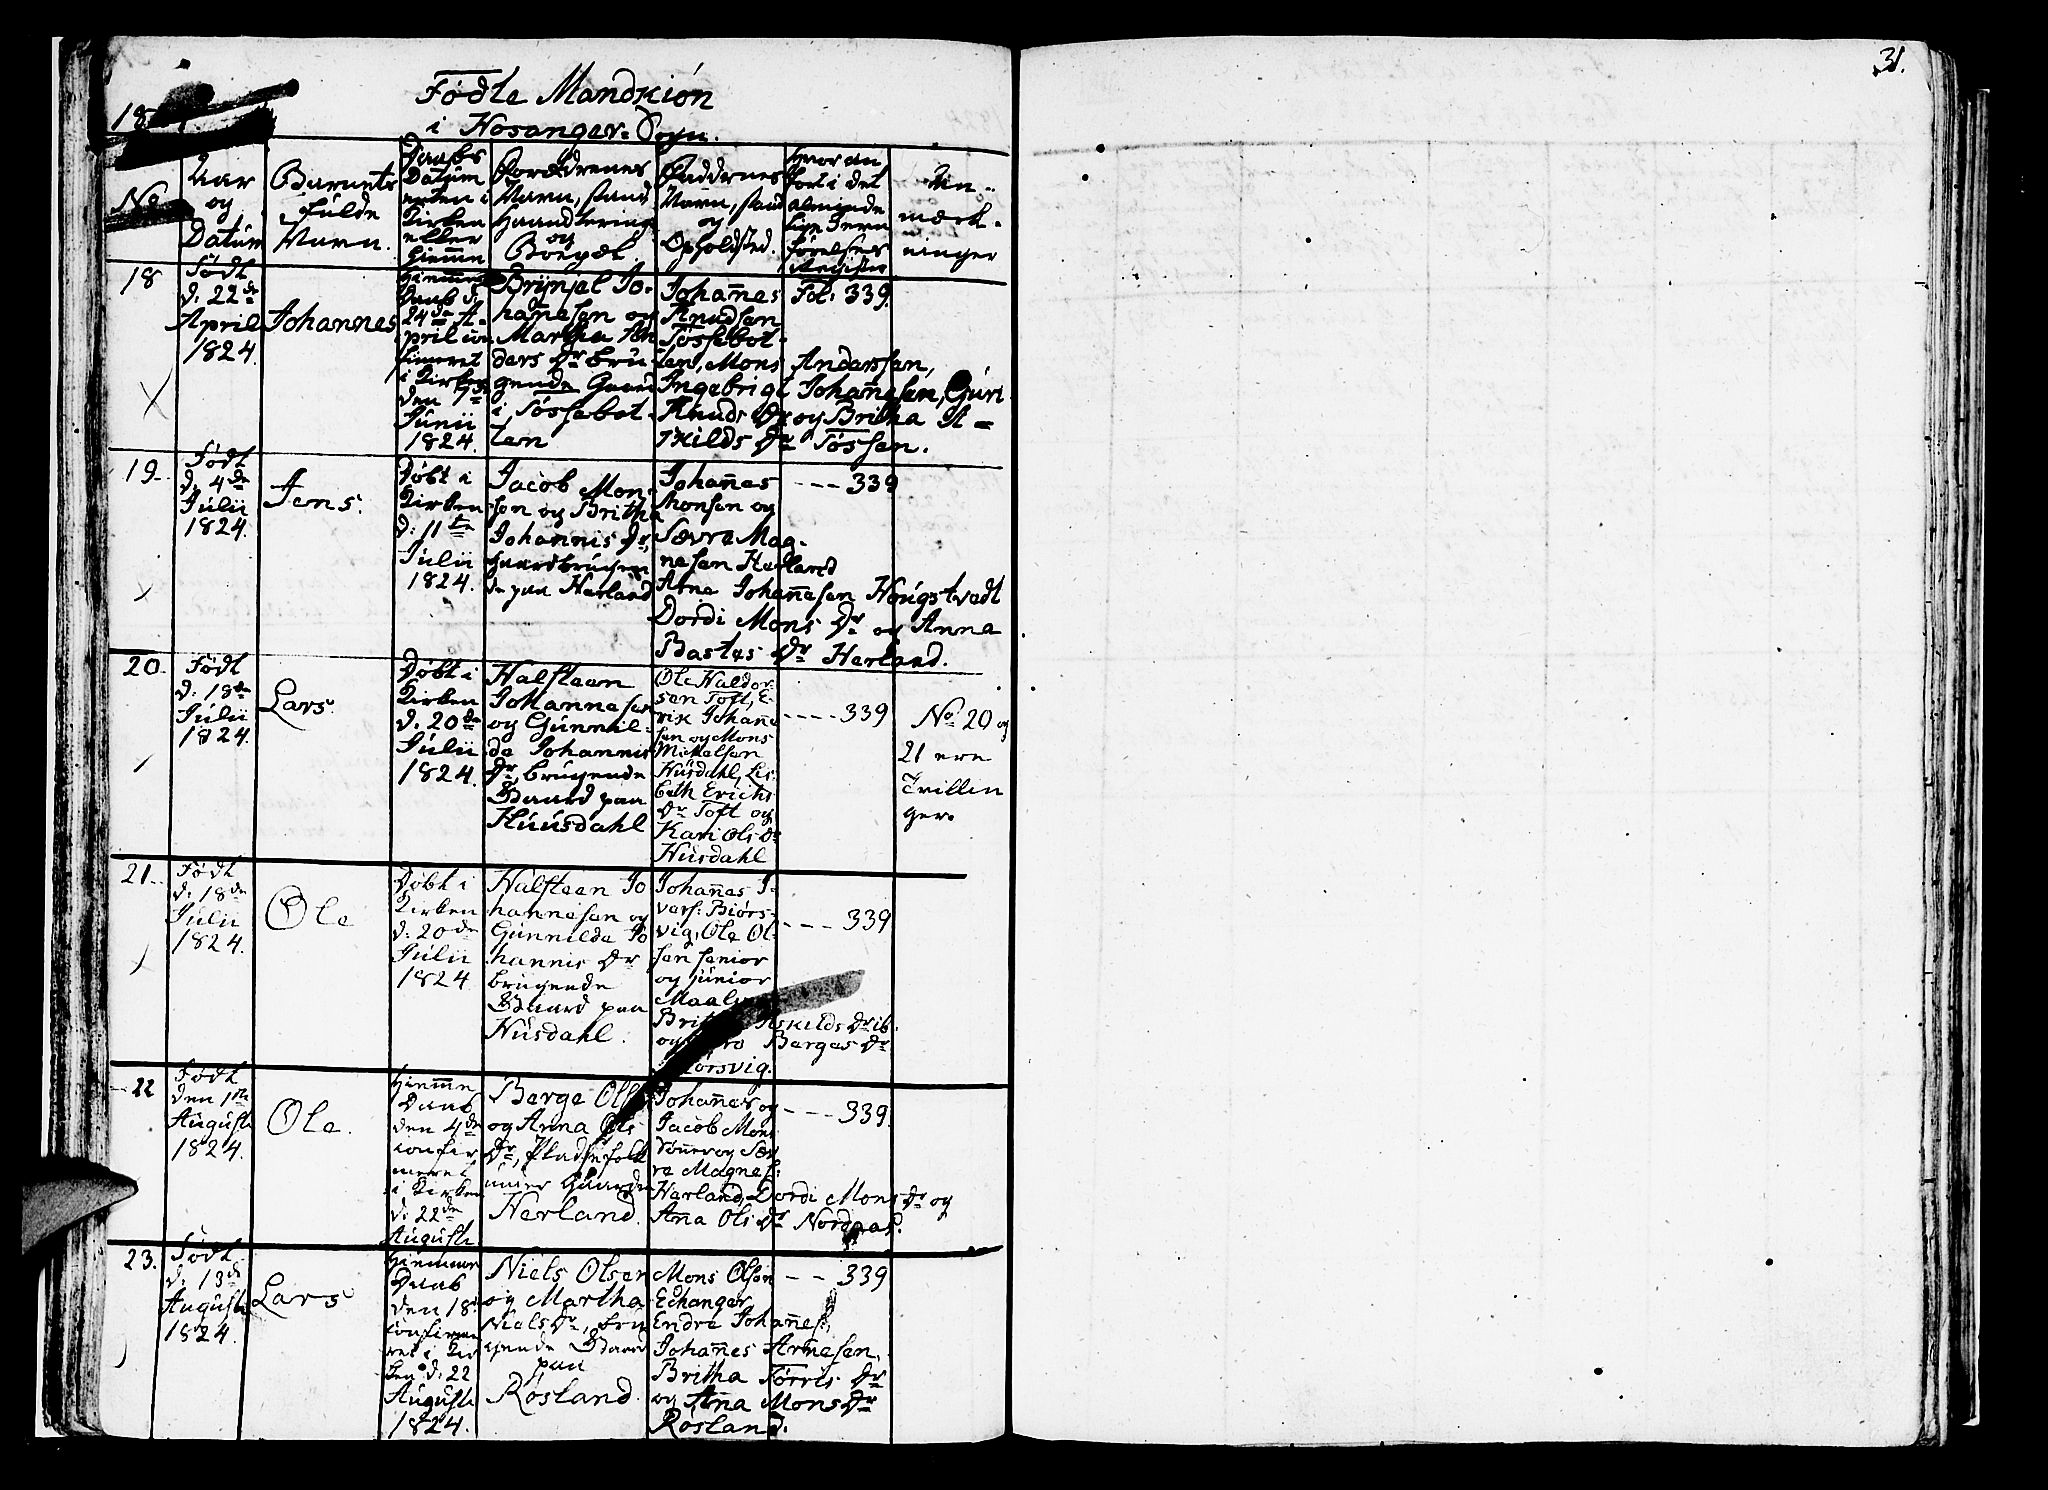 31.
18
Fødte Mandkiön
i Hosanger Sogn.
No
Aar
og
Datum
Barnets
fulde
Navn.
Daabs
Datum
enten i
Kirken
eller
Hiemme
Forældrenes
Navn, stand
Haandtering
og
Bopæl.
Faddernes
Navn, stand
og
Opholdsted.
hvor an
ført i det
alminde
lige Jevn
førelses
Register
An-
mærk-
ninger
18
Født
d: 22de
April
1824.
Johannes
Hiemme
Daab d:
24de A-
pril con
firmeret
i Kirken
den 7de
Junii
1824.
Brynjel Jo-
hannesen og
Martha An
ders Dr bru
gende Gaard
i Tössebot-
ten
Johannes
Knudsen
Tössebot-
ten, Mons Anderssen,
Ingebrigt Johannesen, Guri
Knuds Dr og Britha A=
skilds Dr Tössen.
Fol: 339.
19
Født
d: 4de
Julii
1824.
Jens.
Døbt i
Kirken
d: 11te
Julii
1824.
Jacob Mon-
sen og Britha
Johannis Dr,
gaardbrugen
de paa Herland
Johannes
Monsen og
Sævre Mag-
nesen Herland
Arne Johannesen Hougstvedt
Dordi Mons Dr og Anna
Bastes Dr Herland.
---- 339
20.
Født
d: 18de
Julii
1824.
Lars.
Døbt i
Kirken
d: 20de
Julii
1824.
Halsteen
Johannesen
og Gunnil-
de Johannis
Dr, brugende
Gaard paa
Huusdahl
Ole Haldor-
sen Toft, E-
rik Johanne
sen og Mons
Mikkelsen
Husdahl, Lis-
beth Erichs
Dr Toft og
Kari Ols Dr
Husdahl
---- 339
No 20 og
21 ere
Tvillin
ger.
21.
Født
d: 18de
Julii
1824.
Ole
Døbt i
Kirken
d: 20de
Julii
1824
Halsteen Jo
hannesen og
Gunnilde Jo
hannis Dr
brugende
Gaard paa
Husdahl.
Johannes I-
vers: Biörs-
vig, Ole Ol-
sen senior
og junior
Britha Askilds Dr ib.
og Berges Dr
---- 339
22
Født
den 1ste
Augusti
1824.
Ole.
Hiemme
Daab
den 4de
confir
meret
i Kirken
d: 22de
Augusti
Berge Ols
og Anna Ols
Dr, Pladsefolk
under Gaarden
Herland.
Johannes og
Jacob Mons
Sønner og Sæv
re Magnes:
Herland, Dordi Mons Dr og
Anna Ols Dr Nordaas.
---- 339
23.
Født
d: 13de
Augusti
1824.
Lars
Hiemme
Daab
den 18
confirme
ret i Kir
ken d: 22
Augusti
1824.
Niels Olsen
og Martha
Niels Dr, bru
gende Gaard
paa
Røsland.
Mons Olsen
Echanger
Endre Johannes:,
Johannes Arnesen,
Britha Torris Dr
og Anna Mons Dr
Rosland.
-- 339